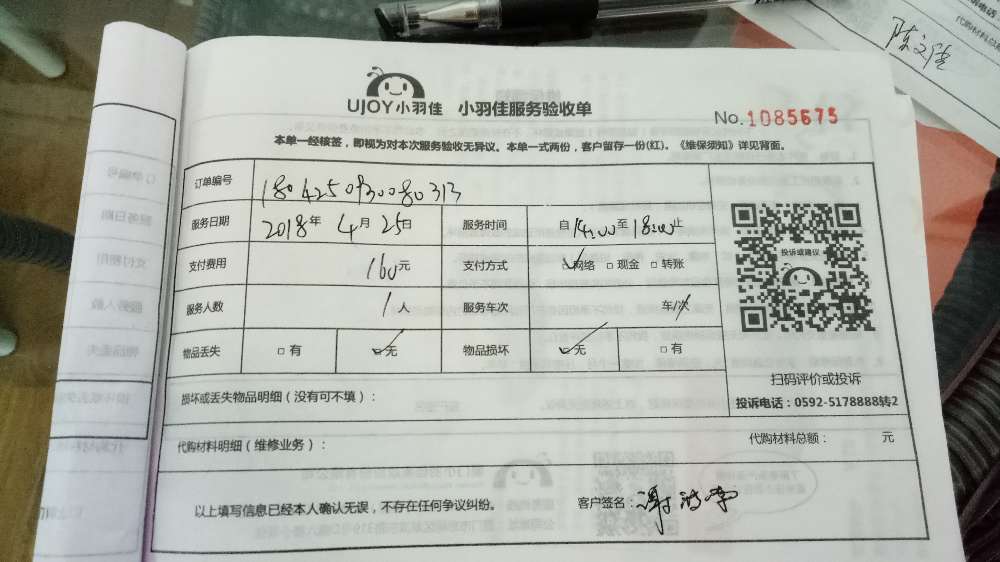 陈文
代购材料总
UJOY小羽佳 小羽佳服务验收单
No.1085675
本单一经核签，即视为对本次服务验收无异议。本单一式两份，客户留存一份(红)。《维保须知》详见背面。
订单编号 1804250930080313
服务日期 2018年 4月 25日 服务时间 自14:00至18:00止
支付费用 160元 支付方式 ☑网络 □现金 □转账
服务人数 1人 服务车次 车/次
物品丢失 □有 ☑无 物品损坏 ☑无 □有
投诉或建议
扫码评价或投诉
投诉电话：0592-5178888转2
损坏或丢失物品明细（没有可不填）：
代购材料明细（维修业务）： 代购材料总额： 元
以上填写信息已经本人确认无误，不存在任何争议纠纷。 客户签名：谢